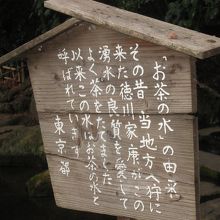 「お茶の水」の由来
その昔 当地方へ狩に
来た徳川家康がこの
湧水の良質を愛して
よく茶をたてました
以来この水はお茶の水と
呼ばれています
東京都